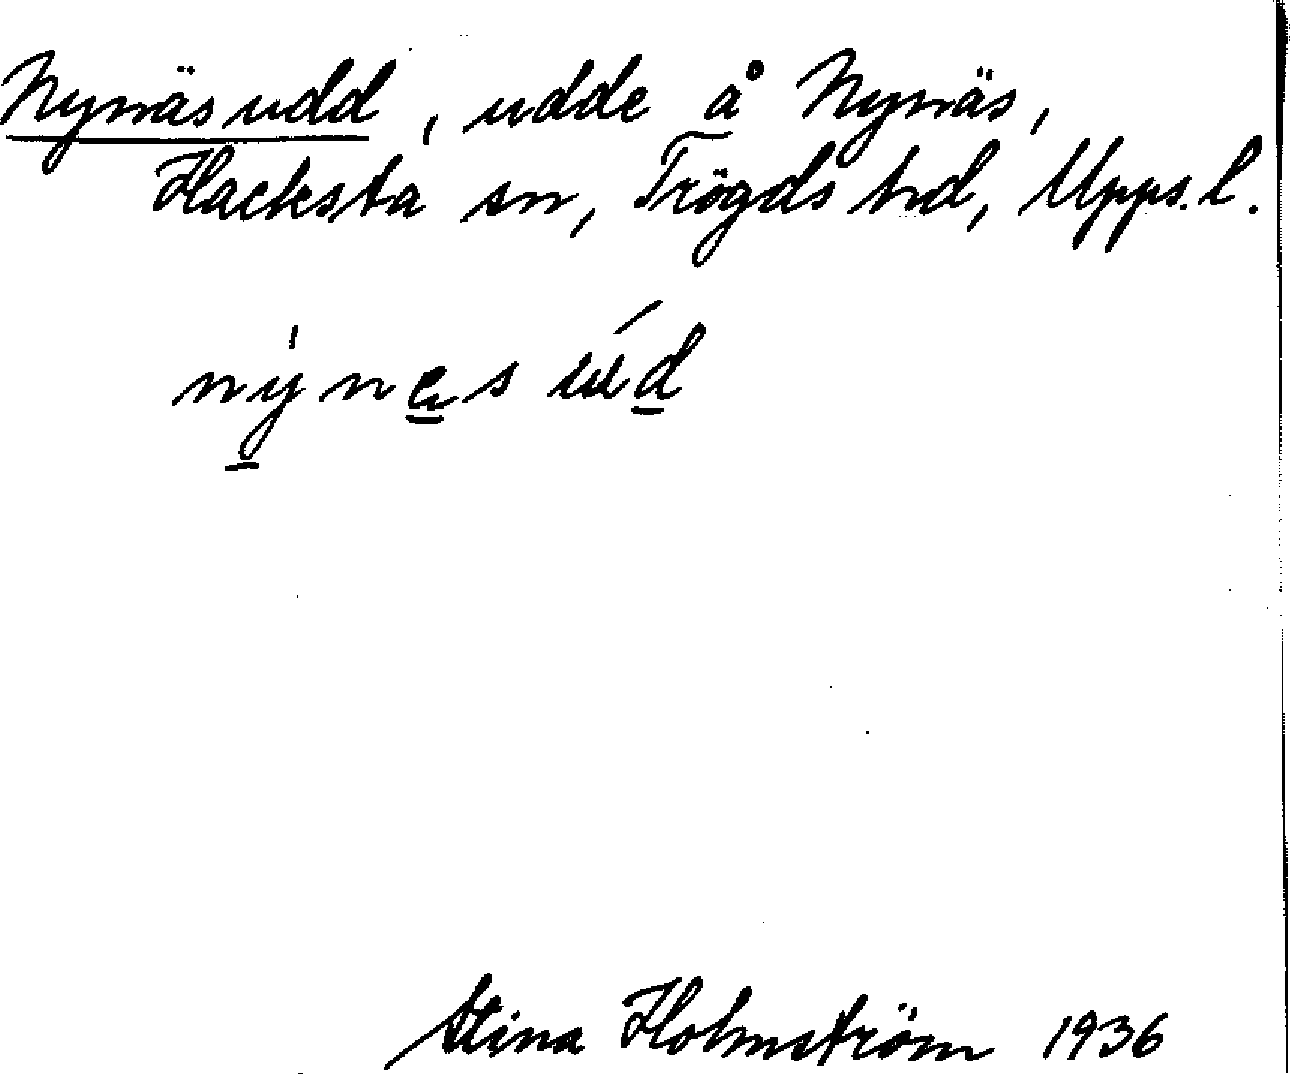 Nynäsudd, udde å Nynäs,
Hacksta sn, Trögds hd, Upps. l.
nýnes úd
Stina Holmström 1936